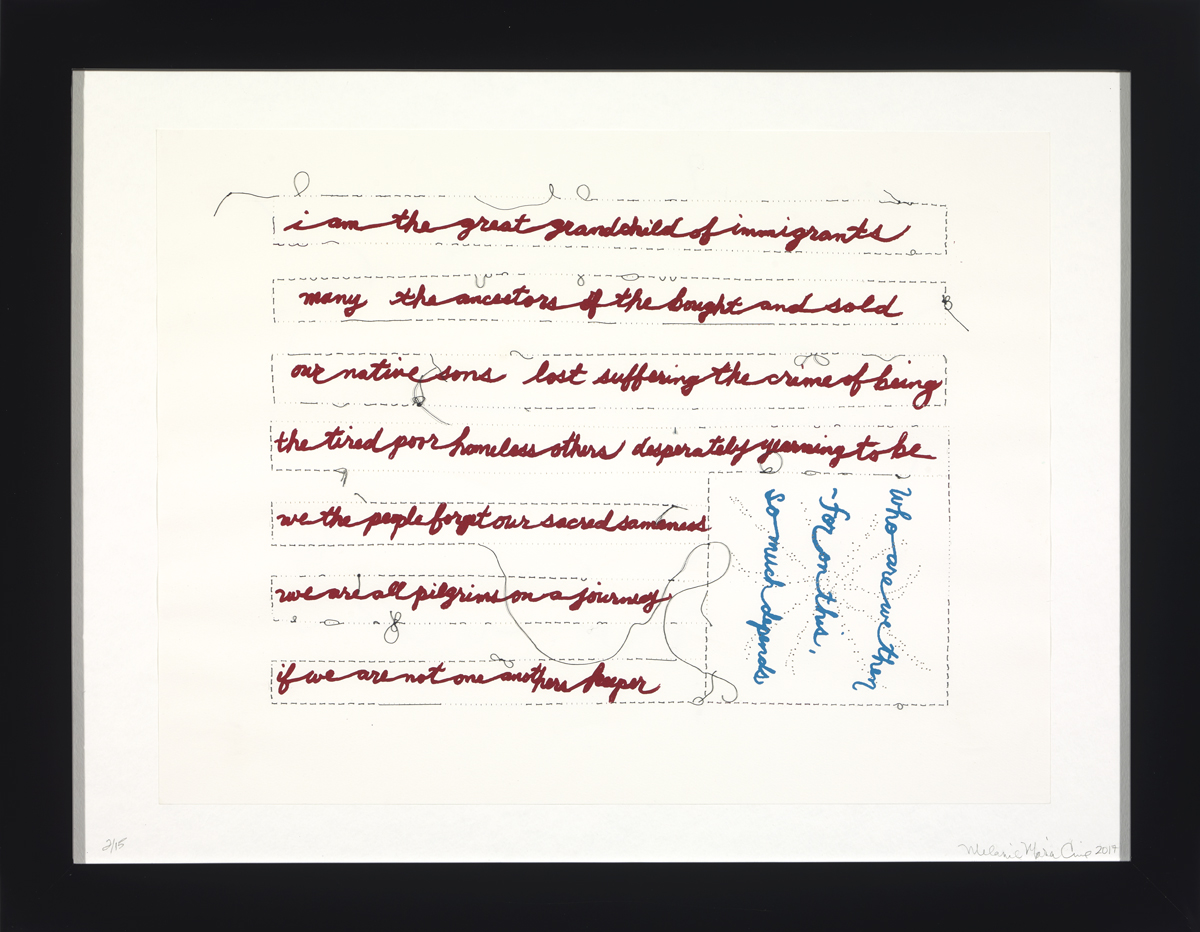 i am the great grandchild of immigrants
many the ancestors of the bought and sold
our native sons lost suffering the crime of being
the tired poor homeless others desperately yearning to be
we the people forget our sacred sameness
we are all pilgrims on a journey
if we are not one anothers keeper
who are we then
~for on this,
so much depends
2/15
Melanie